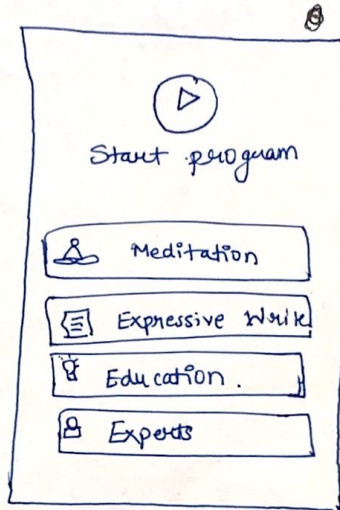 Start program
Meditation
Expressive Write
Education.
Experts